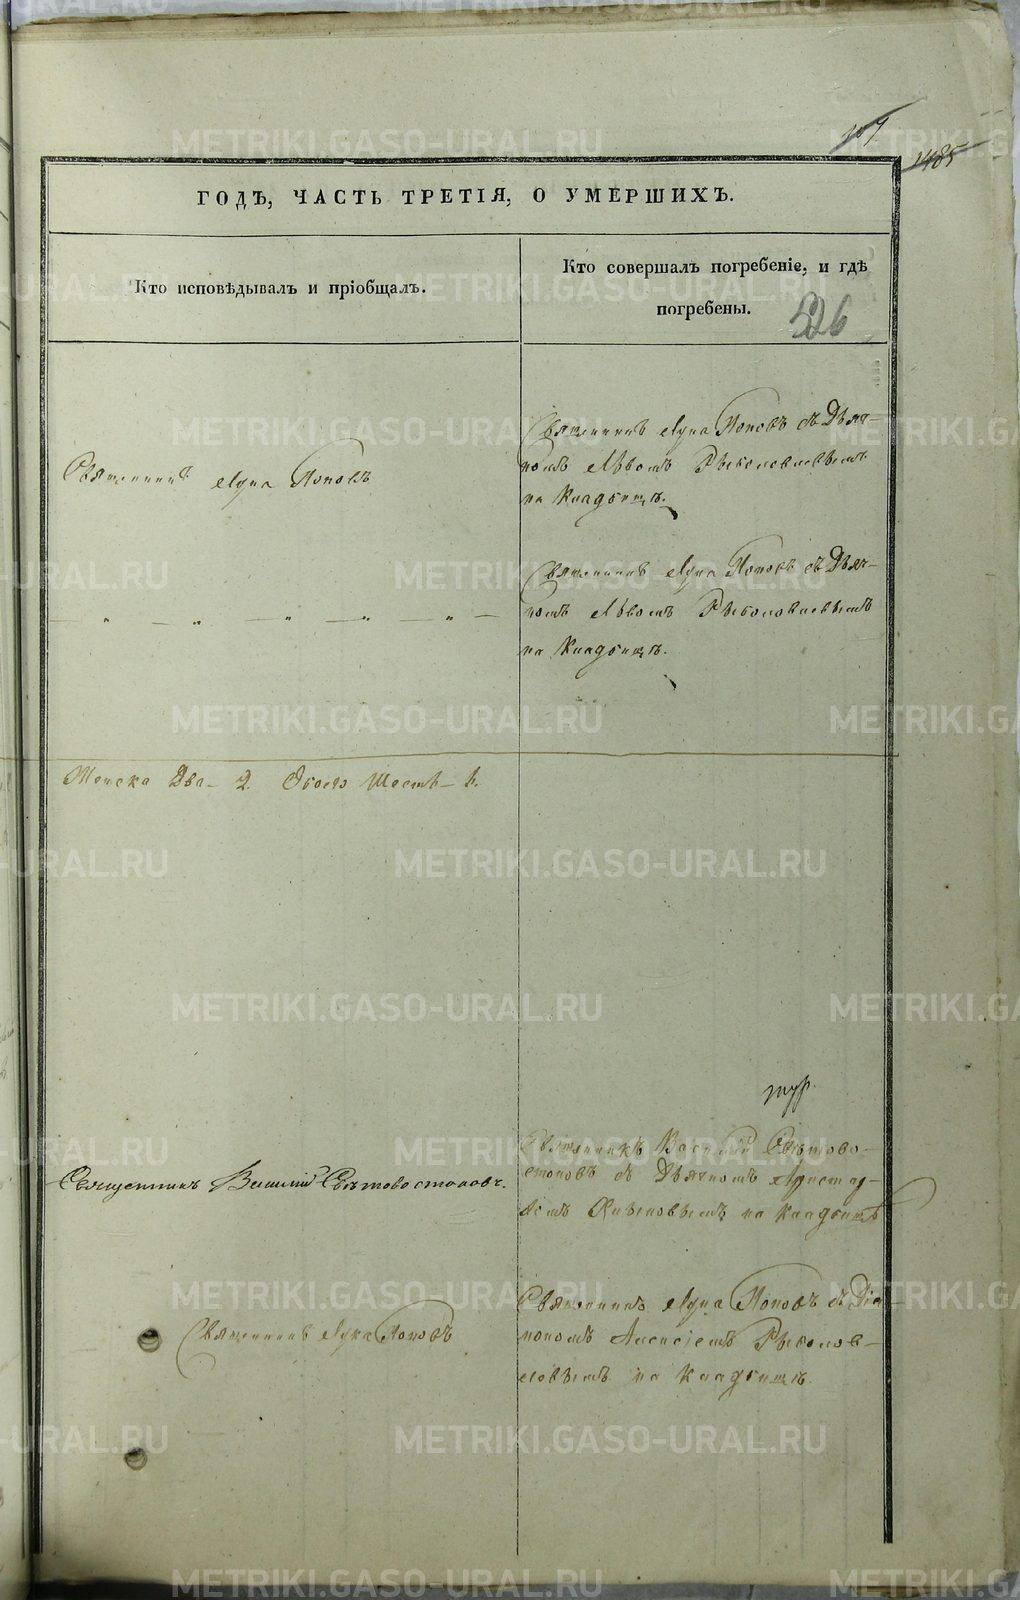 1485
ГОДЪ, ЧАСТЬ ТРЕТІЯ, О УМЕРШИХЪ.
Кто исповѣдывалъ и пріобщалъ.
Кто совершалъ погребеніе, и гдѣ
погребены.
526
Священникъ Лука Поповъ
Священникъ Лука Поповъ съ Дьяч-
комъ Львомъ
на Кладбищѣ.
Священникъ Лука Поповъ съ Дьяч-
комъ Львомъ
на Кладбищѣ.
Женска Два - 2. Обоего Шесть - 6.
Священникъ Василий Свѣтовостоковъ.
Священникъ Василій Свѣтово-
стоковъ съ Дьячкомъ
на кладбищѣ
Священникъ Лука Поповъ
Священникъ Лука Поповъ съ Діа-
кономъ Алексіемъ Рыболов-
левымъ на кладбищѣ.
METRIKI.GASO-URAL.RU